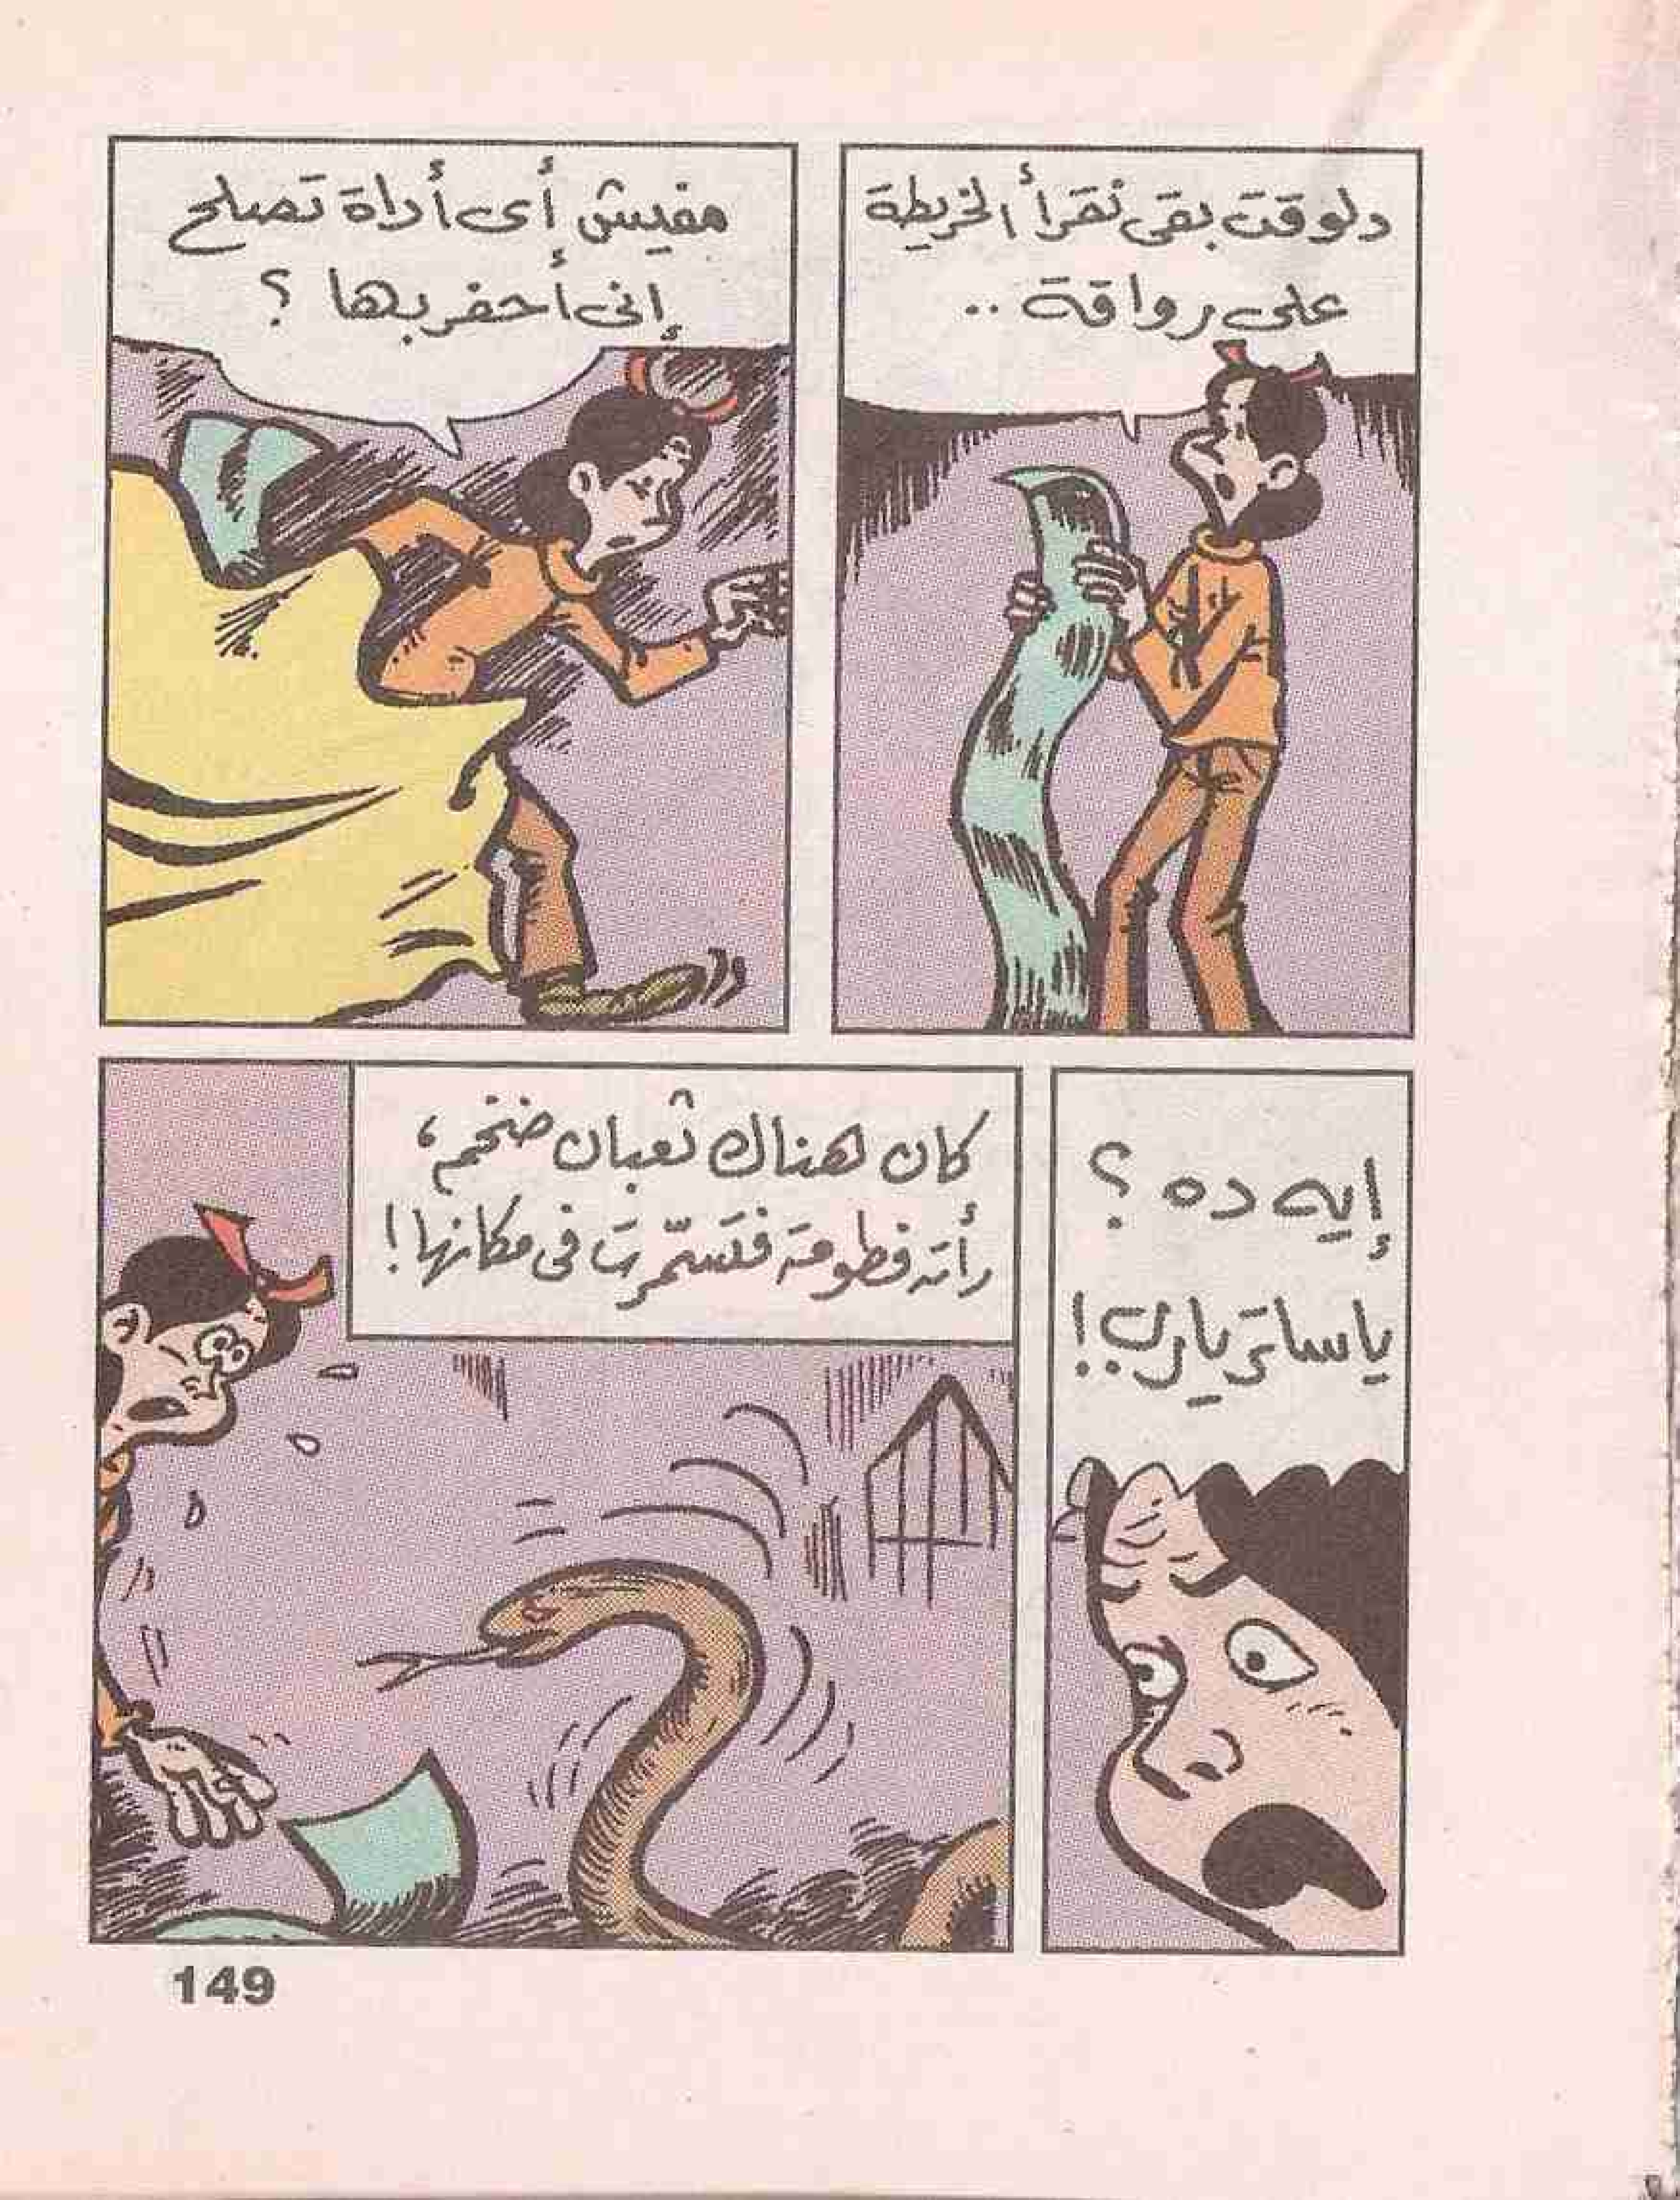 دلوقت بقى نقرأ الخريطة
على رواقة ..
مفيش أى أداة تصلح
إنى أحفر بها ؟
إيه ده ؟
ياساتر يارب !!
كان هناك ثعبان ضخم ،
رأته فطومة فتسمّرت فى مكانها !
149